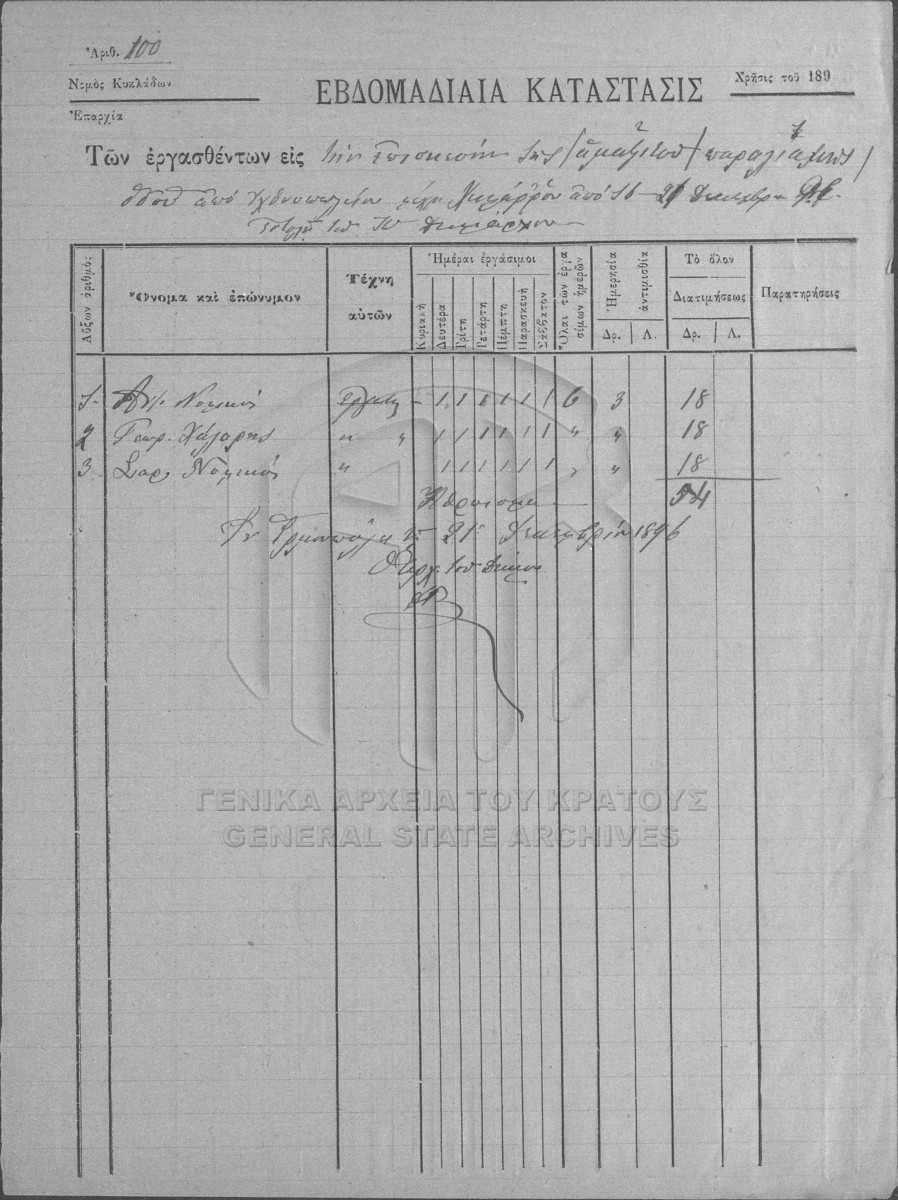 Ἀριθ. 100
Νομὸς Κυκλάδων
Ἐπαρχία
ΕΒΔΟΜΑΔΙΑΙΑ ΚΑΤΑΣΤΑΣΙΣ
Χρῆσις τοῦ 189
Τῶν ἐργασθέντων εἰς τὴν ἐπισκευὴν τῆς (ἁμαξιτοῦ) παραλιακῆς
ὁδοῦ ἀπὸ ἀπὸ 16 - 21 Δεκεμβρ
τοῦ Κυ Δημάρχου
Αὔξων ἀριθμός
Ὄνομα καὶ ἐπώνυμον
Τέχνη αὐτῶν
Ἡμέραι ἐργάσιμοι
Κυριακὴ
Δευτέρα
Τρίτη
Τετάρτη
Πέμπτη
Παρασκευὴ
Σάββατον
Ὅλαι τῶν ἐργασίμων ἡμερῶν
Ἡμερησία ἀντιμισθία
Δρ. Λ.
Τὸ ὅλον Διατιμήσεως
Δρ. Λ.
Παρατηρήσεις
1. Νομικός ἐργάτης – 1 1 1 1 1 1 6 3 18
2 Γεωρ. " " 1 1 1 1 1 1 " " 18
3 Νομικός " 1 1 1 1 1 1 " " 18
Ἄθροισμα 54
Ἐν Ἑρμουπόλει τῇ 21 Δεκεμβρίου 1896
τοῦ Δήμου
ΓΕΝΙΚΑ ΑΡΧΕΙΑ ΤΟΥ ΚΡΑΤΟΥΣ
GENERAL STATE ARCHIVES